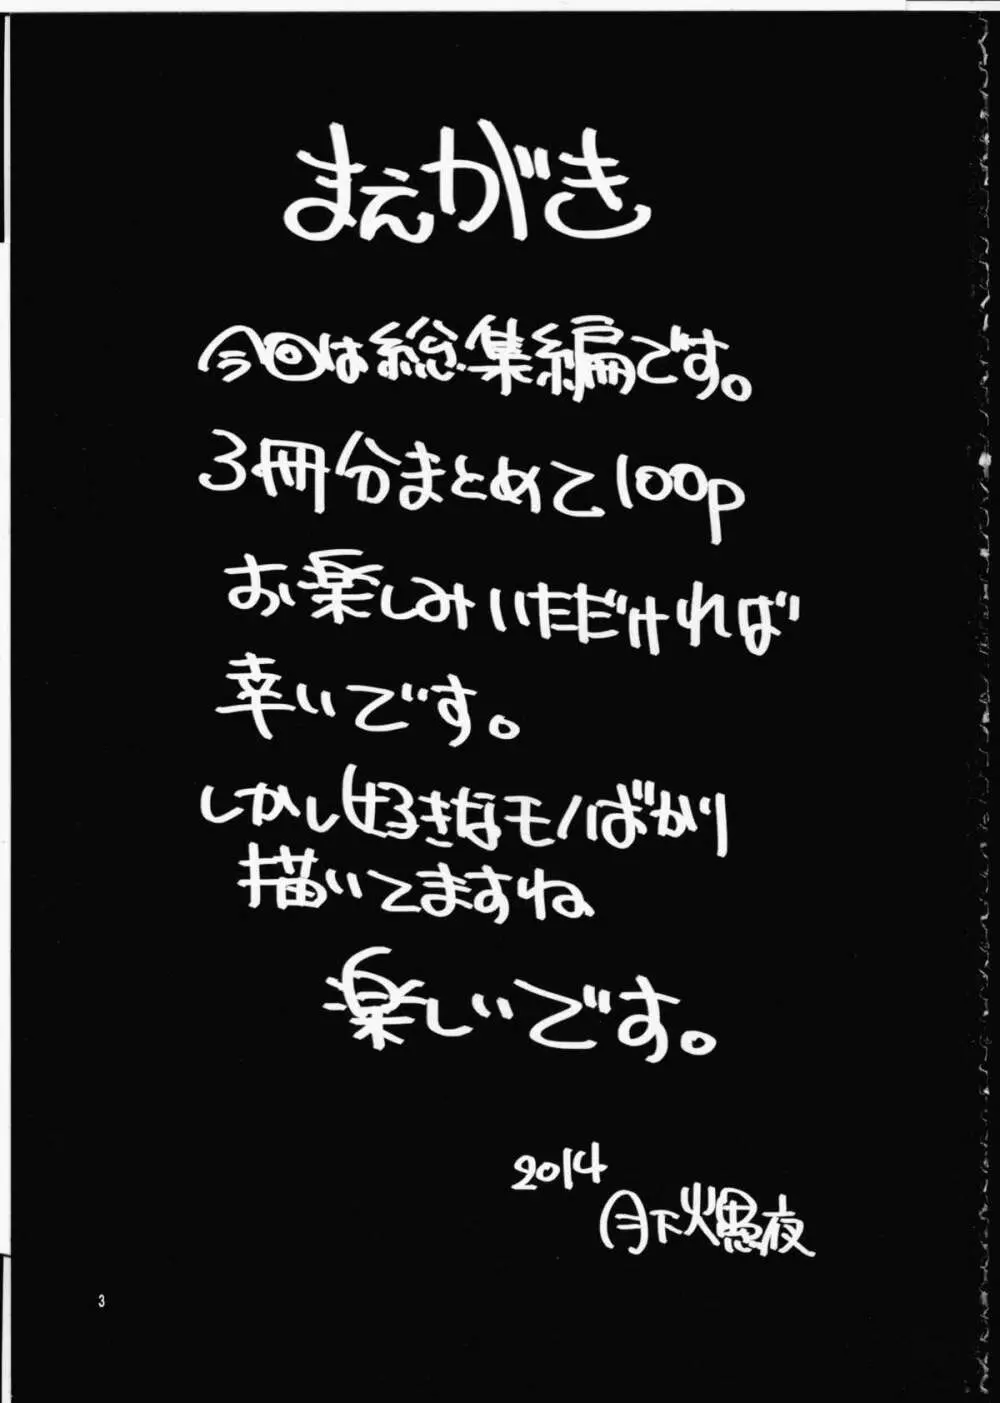 まえがき
今回は総集編です。
3冊分まとめて100p
お楽しみいただければ
幸いです。
しかし好きなモノばかり
描いてますね
楽しいです。
2014
月下火愚夜
3